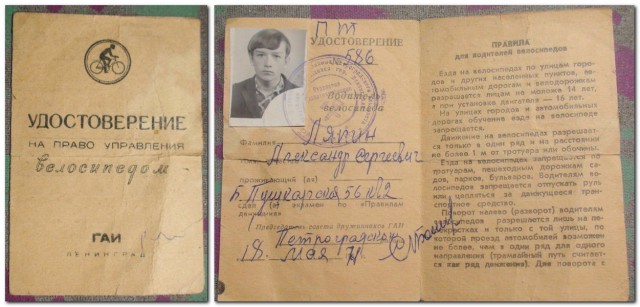 УДОСТОВЕРЕНИЕ
НА ПРАВО УПРАВЛЕНИЯ
велосипедом
ГАИ
ЛЕНИНГРАД
П Ж
УДОСТОВЕРЕНИЕ
586
Водителя
велосипеда
Фамилия Ляпин
Александр Сергеевич
проживающий (ая)
Б. Пушкарская 56 кв 2
сдал (а) экзамен по «Правилам
движения»
ГАИ
Петроградском
18. мая 71
ПРАВИЛА
для водителей велосипедов
Езда на велосипедах по улицам горо-
дов и других населенных пунктов, ав-
томобильным дорогам и велодорожкам
разрешается лицам не моложе 14 лет,
а при установке двигателя — 16 лет.
На улицах городов и автомобильных
дорогах обучение езде на велосипеде
запрещается.
Движение на велосипедах разрешает-
ся только в один ряд и на расстоянии
не более 1 м от тротуара или обочины.
Езда на велосипедах запрещается по
тротуарам, пешеходным дорожкам са-
дов, парков, бульваров. Водителям ве-
лосипедов запрещается отпускать руль
или цепляться за движущееся транс-
портное средство.
Поворот налево (разворот) водителям
велосипедов разрешается лишь на пе-
рекрестках и только с той улицы, по
которой проезд автомобилей возможен
не более, чем в один ряд для одного
направления (трамвайный путь считает-
ся как ряд движения). Для поворота с